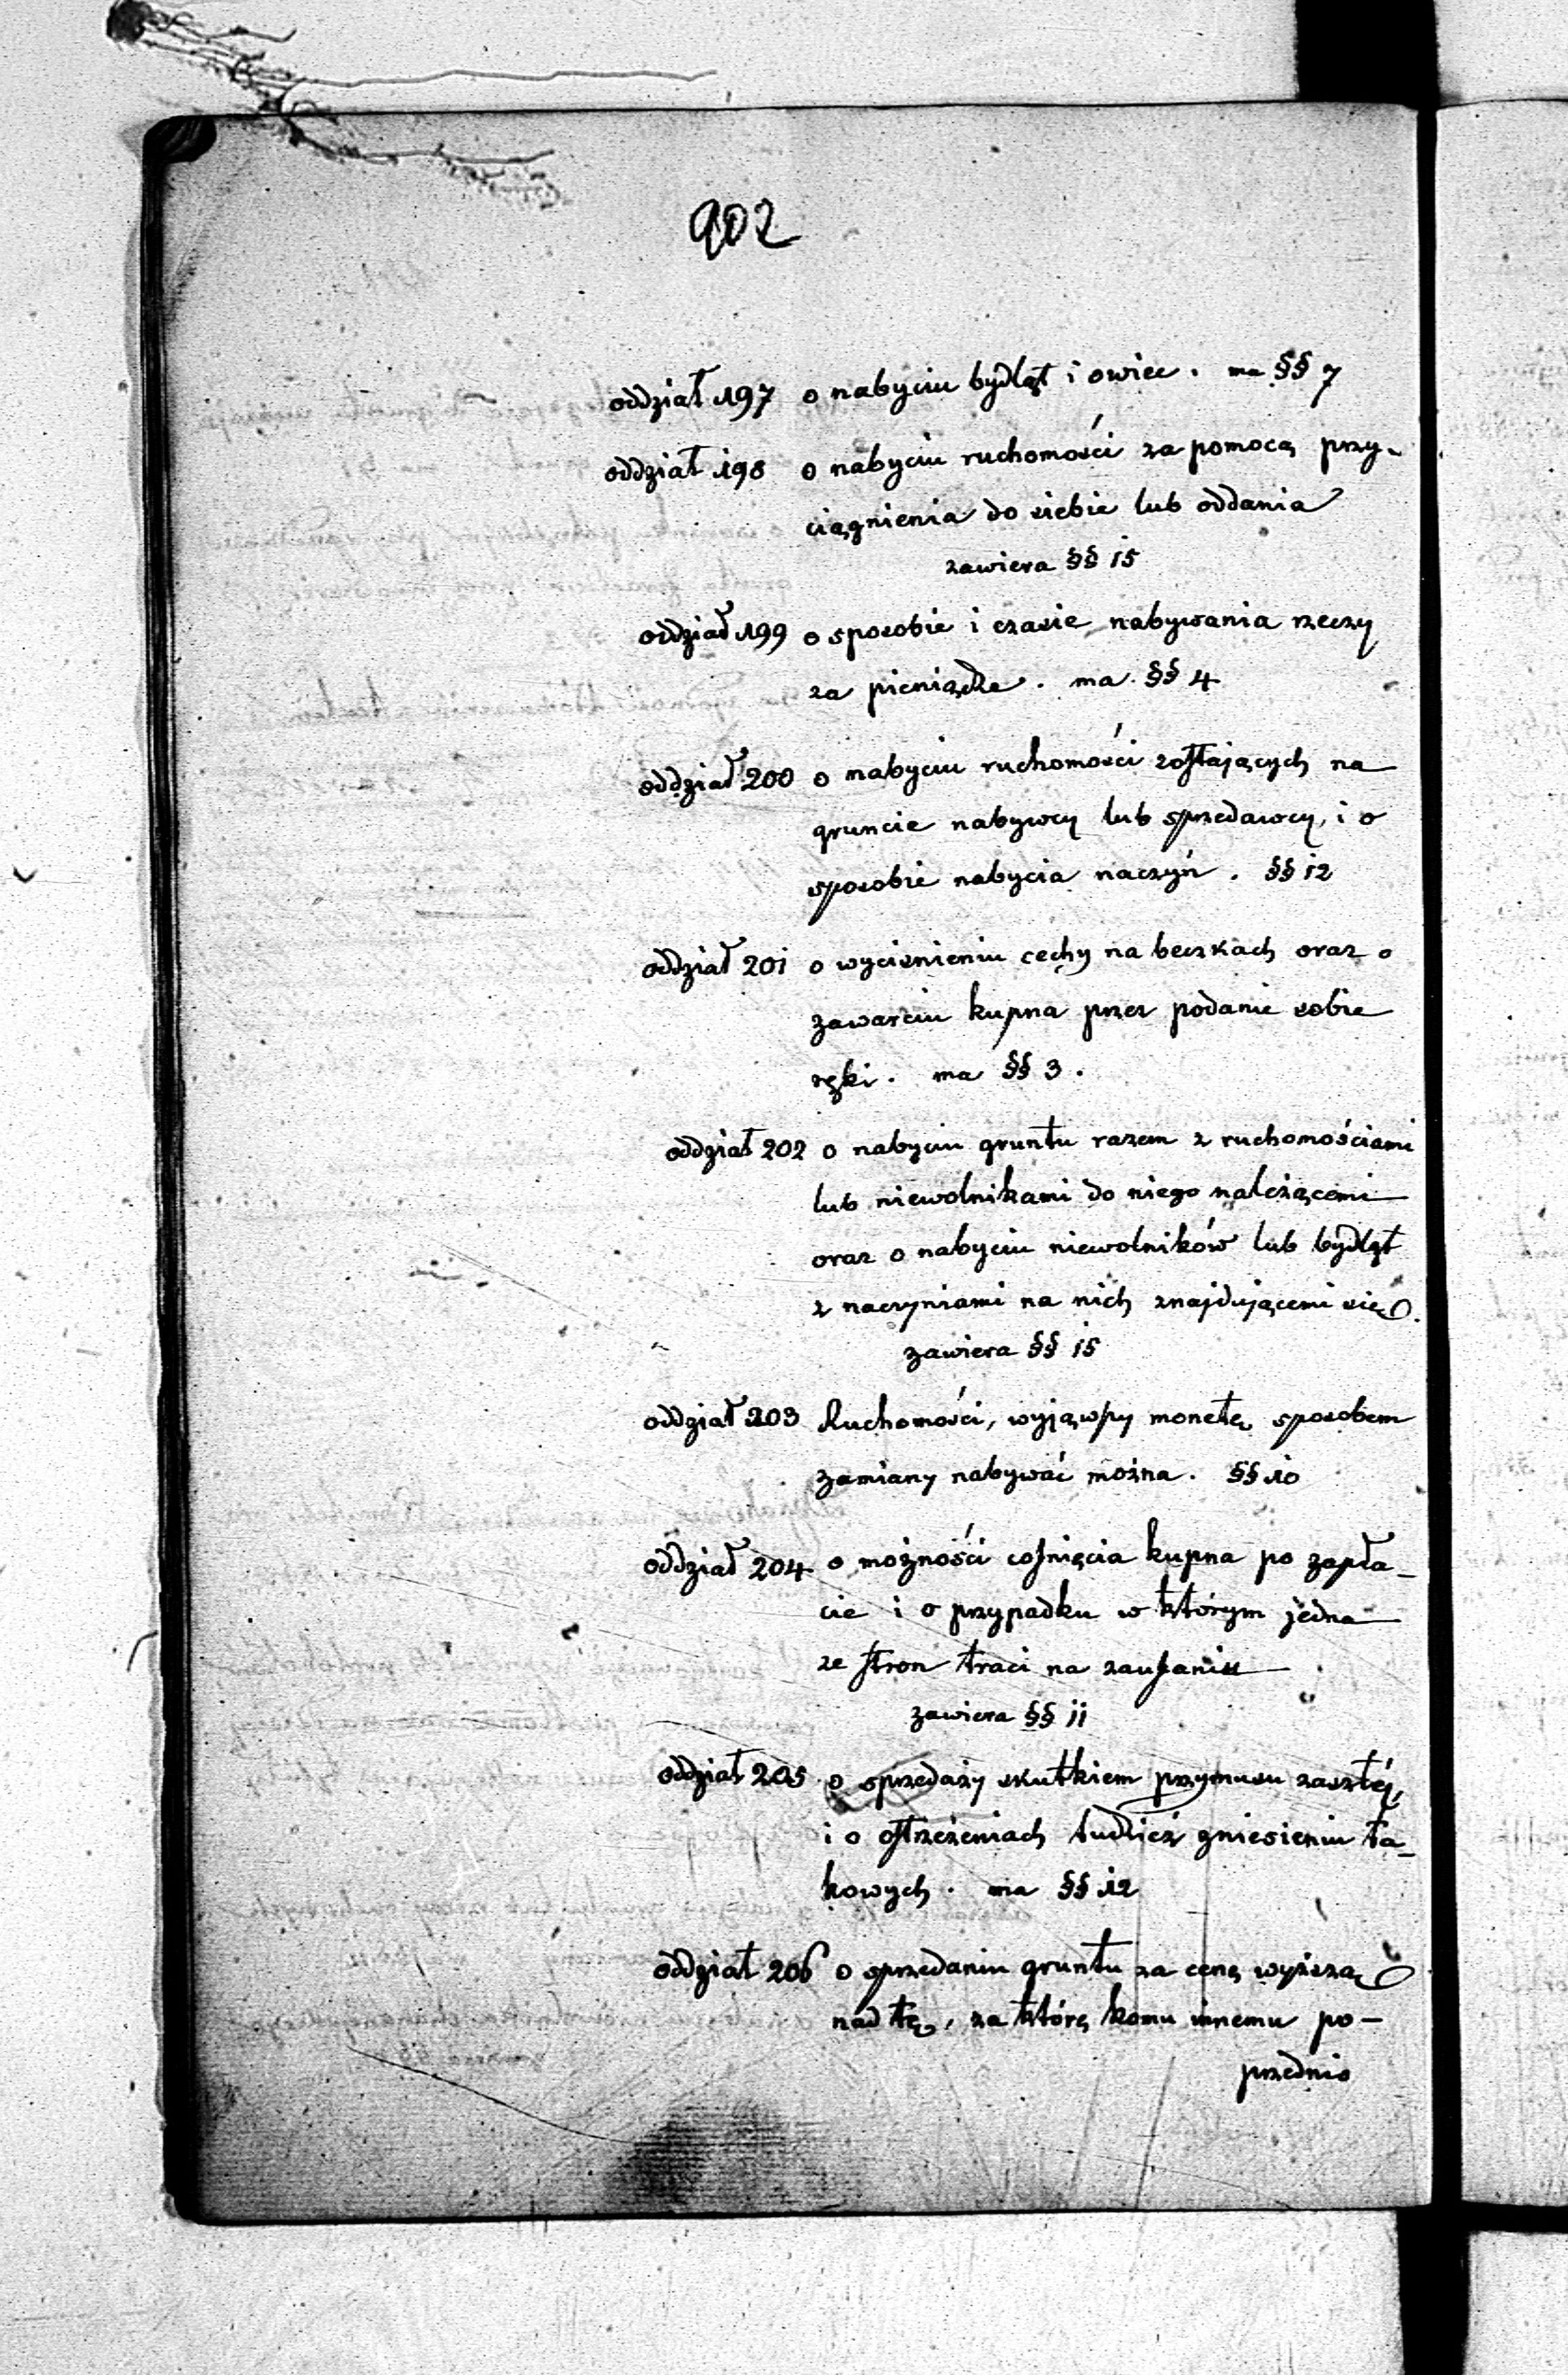 902
oddział 197 o nabyciu bydląt i owiec. ma §§ 7
oddział 198 o nabyciu ruchomości za pomocą przy-
ciągnienia do siebie lub oddania
zawiera §§ 15
oddział 199 o sposobie i czasie nabywania rzeczy
za pieniądze. ma §§ 4
oddział 200 o nabyciu ruchomości zostających na
gruncie nabywcy lub sprzedawcy, i o
sposobie nabycia naczyń. §§ 12
oddział 201 o wyciśnieniu cechy na beczkach oraz o
zawarciu kupna przez podanie sobie
ręki. ma §§ 3.
oddział 202 o nabyciu gruntu razem z ruchomościami
lub niewolnikami do niego należącemi
oraz o nabyciu niewolników lub bydląt
z naczyniami na nich znajdującemi się.
zawiera §§ 15
oddział 203 Ruchomości, wyjąwszy monetę sposobem
zamiany nabywać można. §§ 10
oddział 204 o możności cofnięcia kupna po zapła-
cie i o przypadku w którym jedna
ze stron traci na zaufaniu
zawiera §§ 11
oddział 205 o sprzedaży skutkiem przymusu zaszłéj,
i o ostrzeżeniach tudzież zniesieniu ta-
kowych. ma §§ 12
oddział 206 o sprzedaniu gruntu za cenę wyższą
nad tę, za którę komu innemu po-
przednio